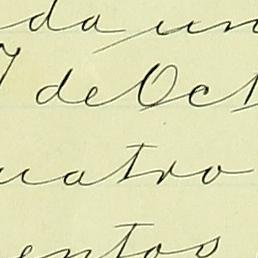 da un
7 de Oct
uatro
entos